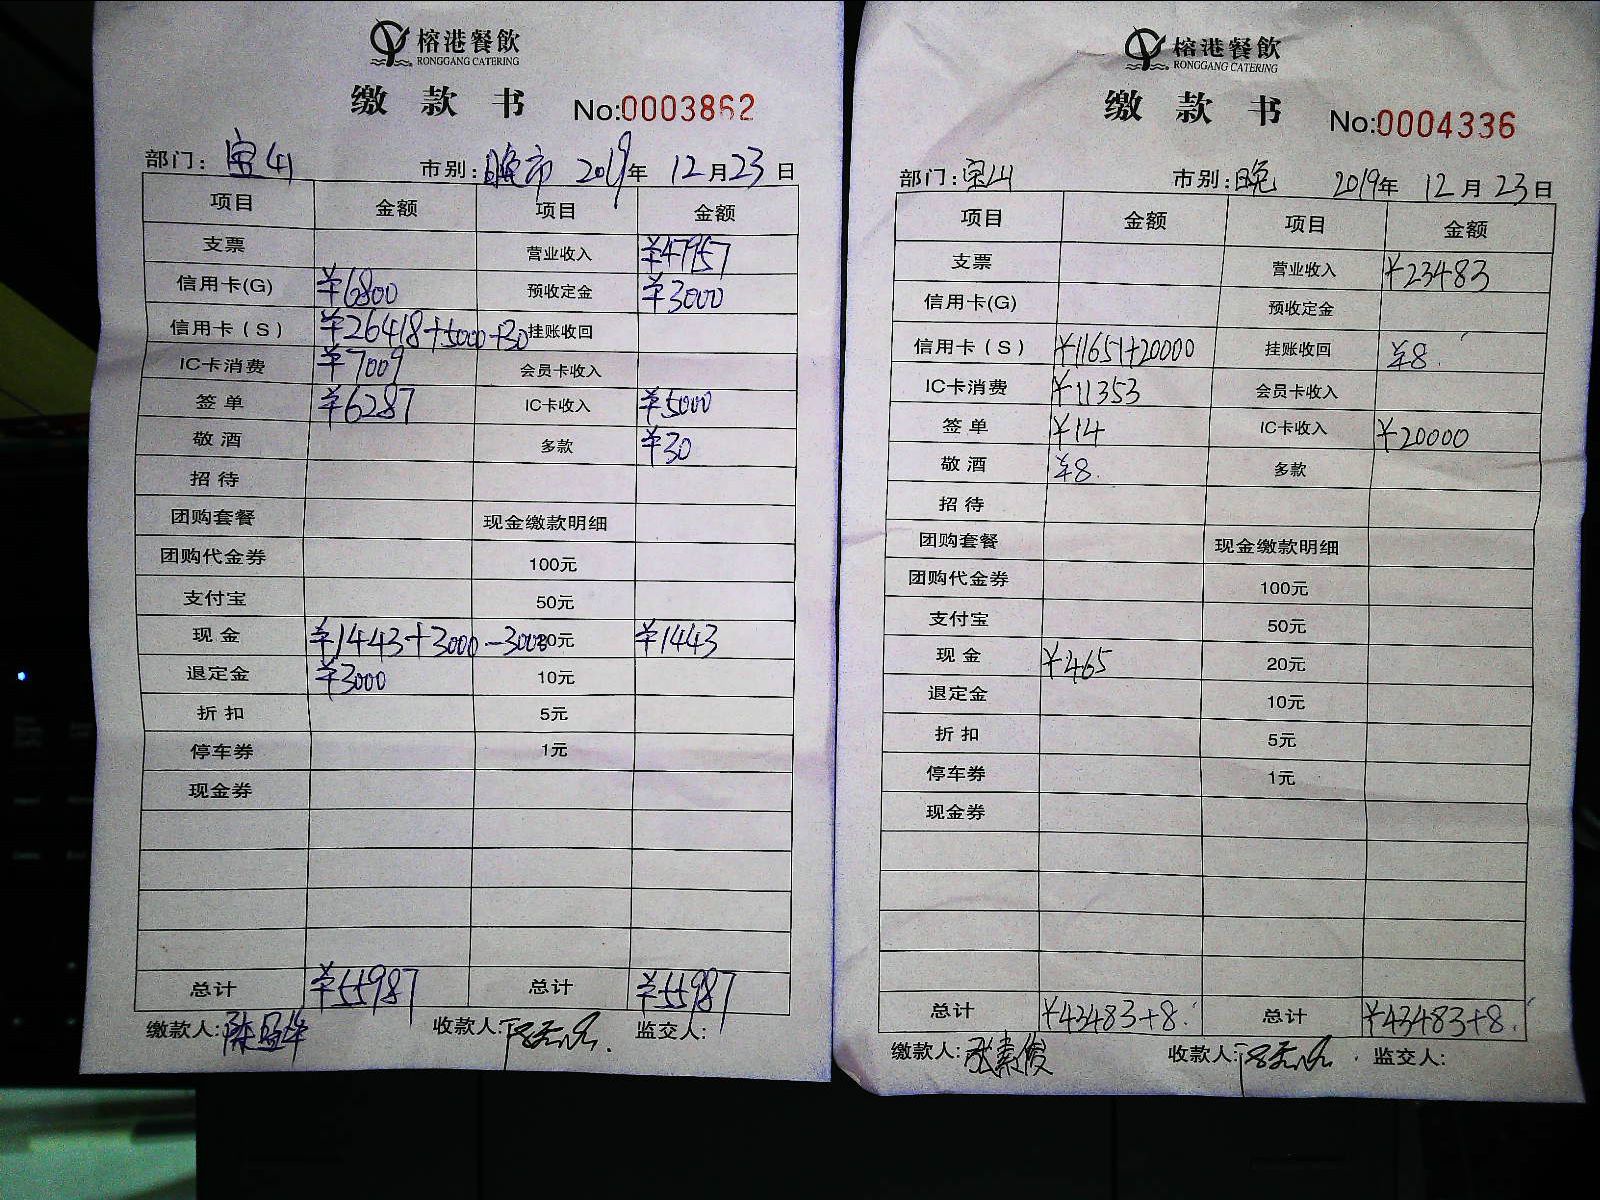 榕港餐飲
RONGGANG CATERING
缴款书 No:0003862
部门: 宝山 市别: 晚市 2019年 12月23日
项目 金额 项目 金额
支票 营业收入 ¥47957
信用卡(G) ¥6800 预收定金 ¥3000
信用卡(S) ¥26418+5000+30 挂账收回
IC卡消费 ¥7009 会员卡收入
签单 ¥6287 IC卡收入 ¥5000
敬酒 多款 ¥30
招待
团购套餐 现金缴款明细
团购代金券 100元
支付宝 50元
现金 ¥1443+3000-3000 20元 ¥1443
退定金 ¥3000 10元
折扣 5元
停车券 1元
现金券
总计 ¥55987 总计 ¥55987
缴款人: 收款人: 监交人:
榕港餐飲
RONGGANG CATERING
缴款书 No:0004336
部门: 宝山 市别: 晚 2019年 12月23日
项目 金额 项目 金额
支票 营业收入 ¥23483
信用卡(G) 预收定金
信用卡(S) ¥11651+20000 挂账收回 ¥8.
IC卡消费 ¥11353 会员卡收入
签单 ¥14 IC卡收入 ¥20000
敬酒 ¥8. 多款
招待
团购套餐 现金缴款明细
团购代金券 100元
支付宝 50元
现金 ¥465 20元
退定金 10元
折扣 5元
停车券 1元
现金券
总计 ¥43483+8. 总计 ¥43483+8.
缴款人: 张素俊 收款人: 监交人: